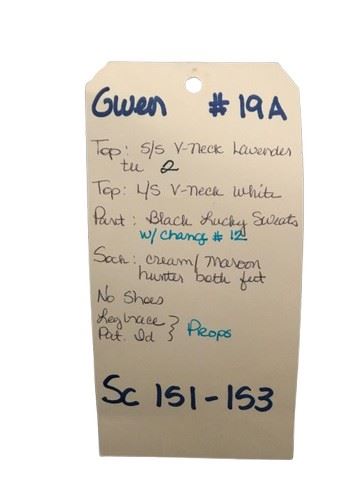 Gwen # 19A
Top: S/S V-Neck Lavender
tee 2
Top: L/S V-Neck White
Pant: Black Lucky Sweats
w/ Chang # 12
Sock: cream/ maroon
hunter both feet
No Shoes
Leg brace } Props
Pat. Id
Sc 151-153